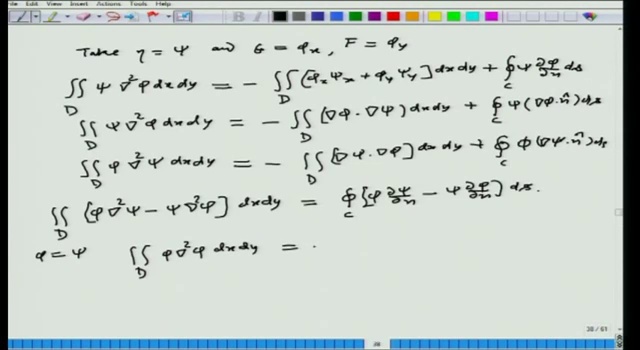 File Edit View Insert Actions Tools Help
B
Take η = ψ and G = φ_x, F = φ_y
∬_D ψ ∇²φ dxdy = - ∬_D [φ_x ψ_x + φ_y ψ_y] dxdy + ∮_C ψ ∂φ/∂n ds
∬_D ψ ∇²φ dxdy = - ∬_D (∇φ . ∇ψ) dxdy + ∮_C ψ (∇φ . n̂) ds
∬_D φ ∇²ψ dxdy = - ∬_D [∇ψ . ∇φ] dxdy + ∮_C φ (∇ψ . n̂) ds
∬_D [φ ∇²ψ - ψ ∇²φ] dxdy = ∮_C [φ ∂ψ/∂n - ψ ∂φ/∂n] ds.
φ = ψ ∬_D φ ∇²φ dxdy =